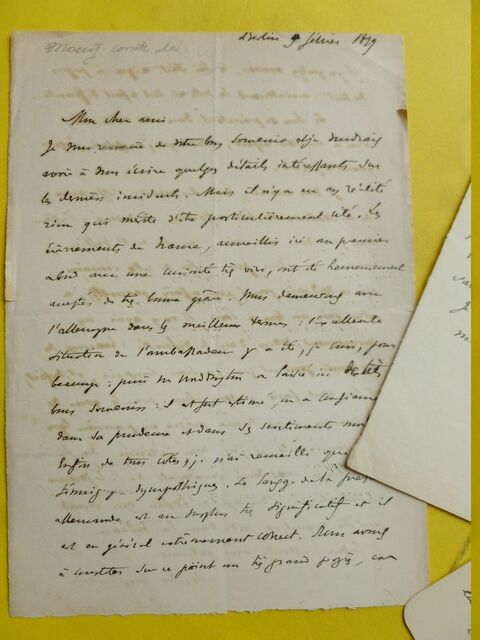 Moüy, comte de
Berlin 9 février 1879
Mon cher ami
Je vous remercie de votre bon souvenir et je voudrais
avoir à vous écrire quelques détails intéressants sur
les derniers incidents. Mais il n'y a eu en réalité
rien qui mérite d'être particulièrement cité. Les
évènements de France, accueillis ici au premier
abord avec une curiosité très vive, ont été heureusement
acceptés de très bonne grâce. Nous demeurons avec
l'allemagne dans les meilleurs termes : l'excellente
situation de l'ambassadeur y a été, je crois, pour
beaucoup : puis M Waddington a laissé ici de très
bons souvenirs : il est fort estimé, on a confiance
dans sa prudence et dans ses sentiments
Enfin de tous côtés, je n'ai recueilli que
témoig sympathiques. Le langage de la
allemande est au surplus très significatif et il
est en général extrêmement correct. Nous avons
à constater sur ce point un très grand progrès, car